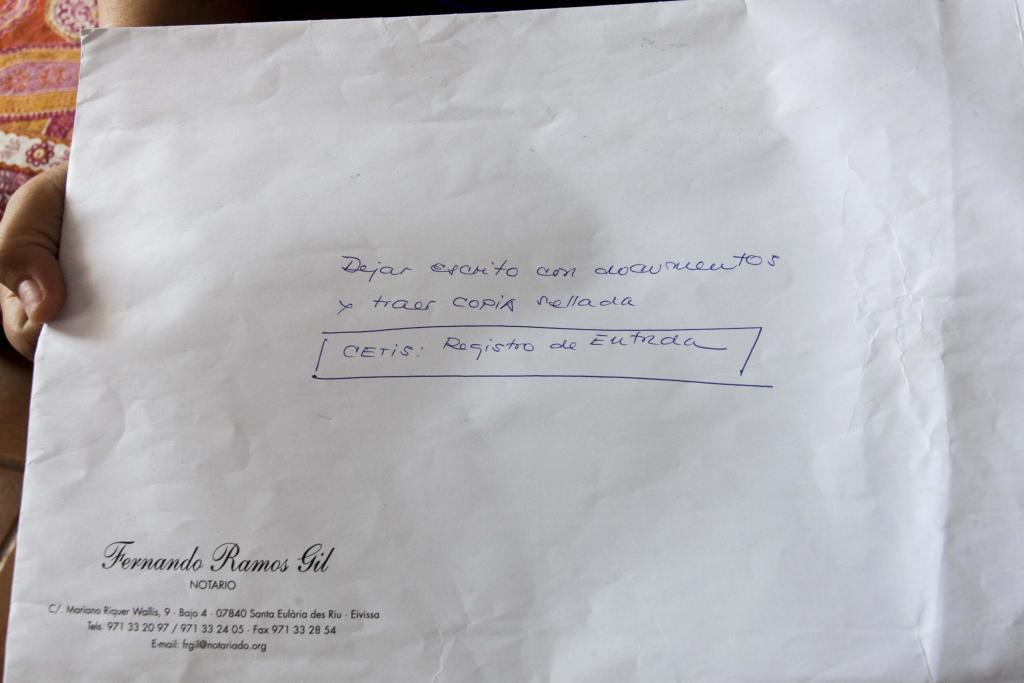 Dejar escrito con documentos
y traer COPIA sellada
CETIS: Registro de Entrada
Fernando Ramos Gil
NOTARIO
C/. Mariano Riquer Wallis, 9 · Bajo 4 · 07840 Santa Eulària des Riu · Eivissa
Tels. 971 33 20 97 / 971 33 24 05 · Fax 971 33 28 54
E-mail: frgil@notariado.org